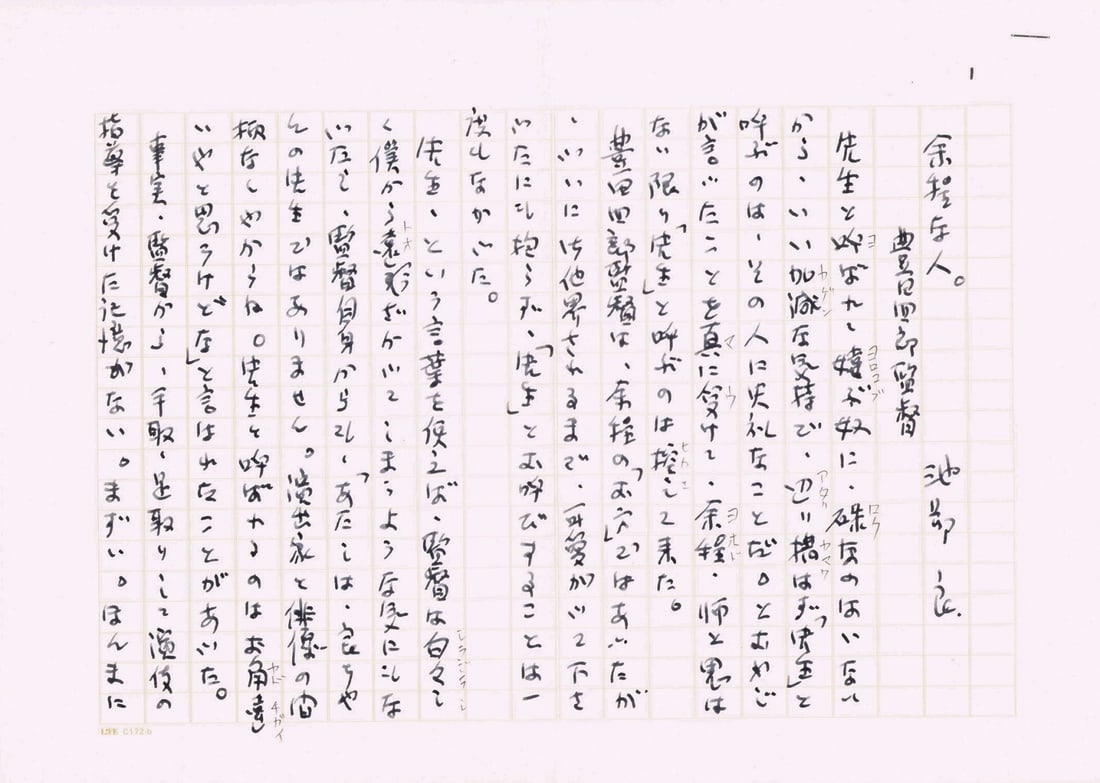 1
余程な人。
豊田四郎監督　池部　良.
先生と呼ばれて嬉ぶ奴に、碌なのはいない
ヨ　ヨロコブ　ロク
から、いい加減な気持で、辺り構はず「先生」と
カゲン　アタリ　カマワ
呼ぶのは、その人に失礼なことだ。とおやじ
が言ったことを真に受けて、余程、師と思は
マ　ウ　ヨホド
ない限り「先生」と呼ぶのは控えて来た。
ヒカエ
豊田四郎監督は、余程の「お方」ではあったが
、ついに御他界されるまで、可愛がって下さ
ったにも拘らず、「先生」とお呼びすることは一
度もなかった。
先生、という言葉を使えば、監督は白々し
シラジラシ
く僕から遠ざかってしまうような気にもな
トオ
ったし、監督自身からも、「あたしは、良ちゃ
んの先生ではありません。演出家と俳優の間
柄なんやからね。先生と呼ばれるのはお角違
カド　チガイ
いやと思うけどな」と言はれたことがあった。
事実、監督から、手取り足取りして演技の
指導を受けた記憶がない。まずい。ほんまに
LIFE C172-b